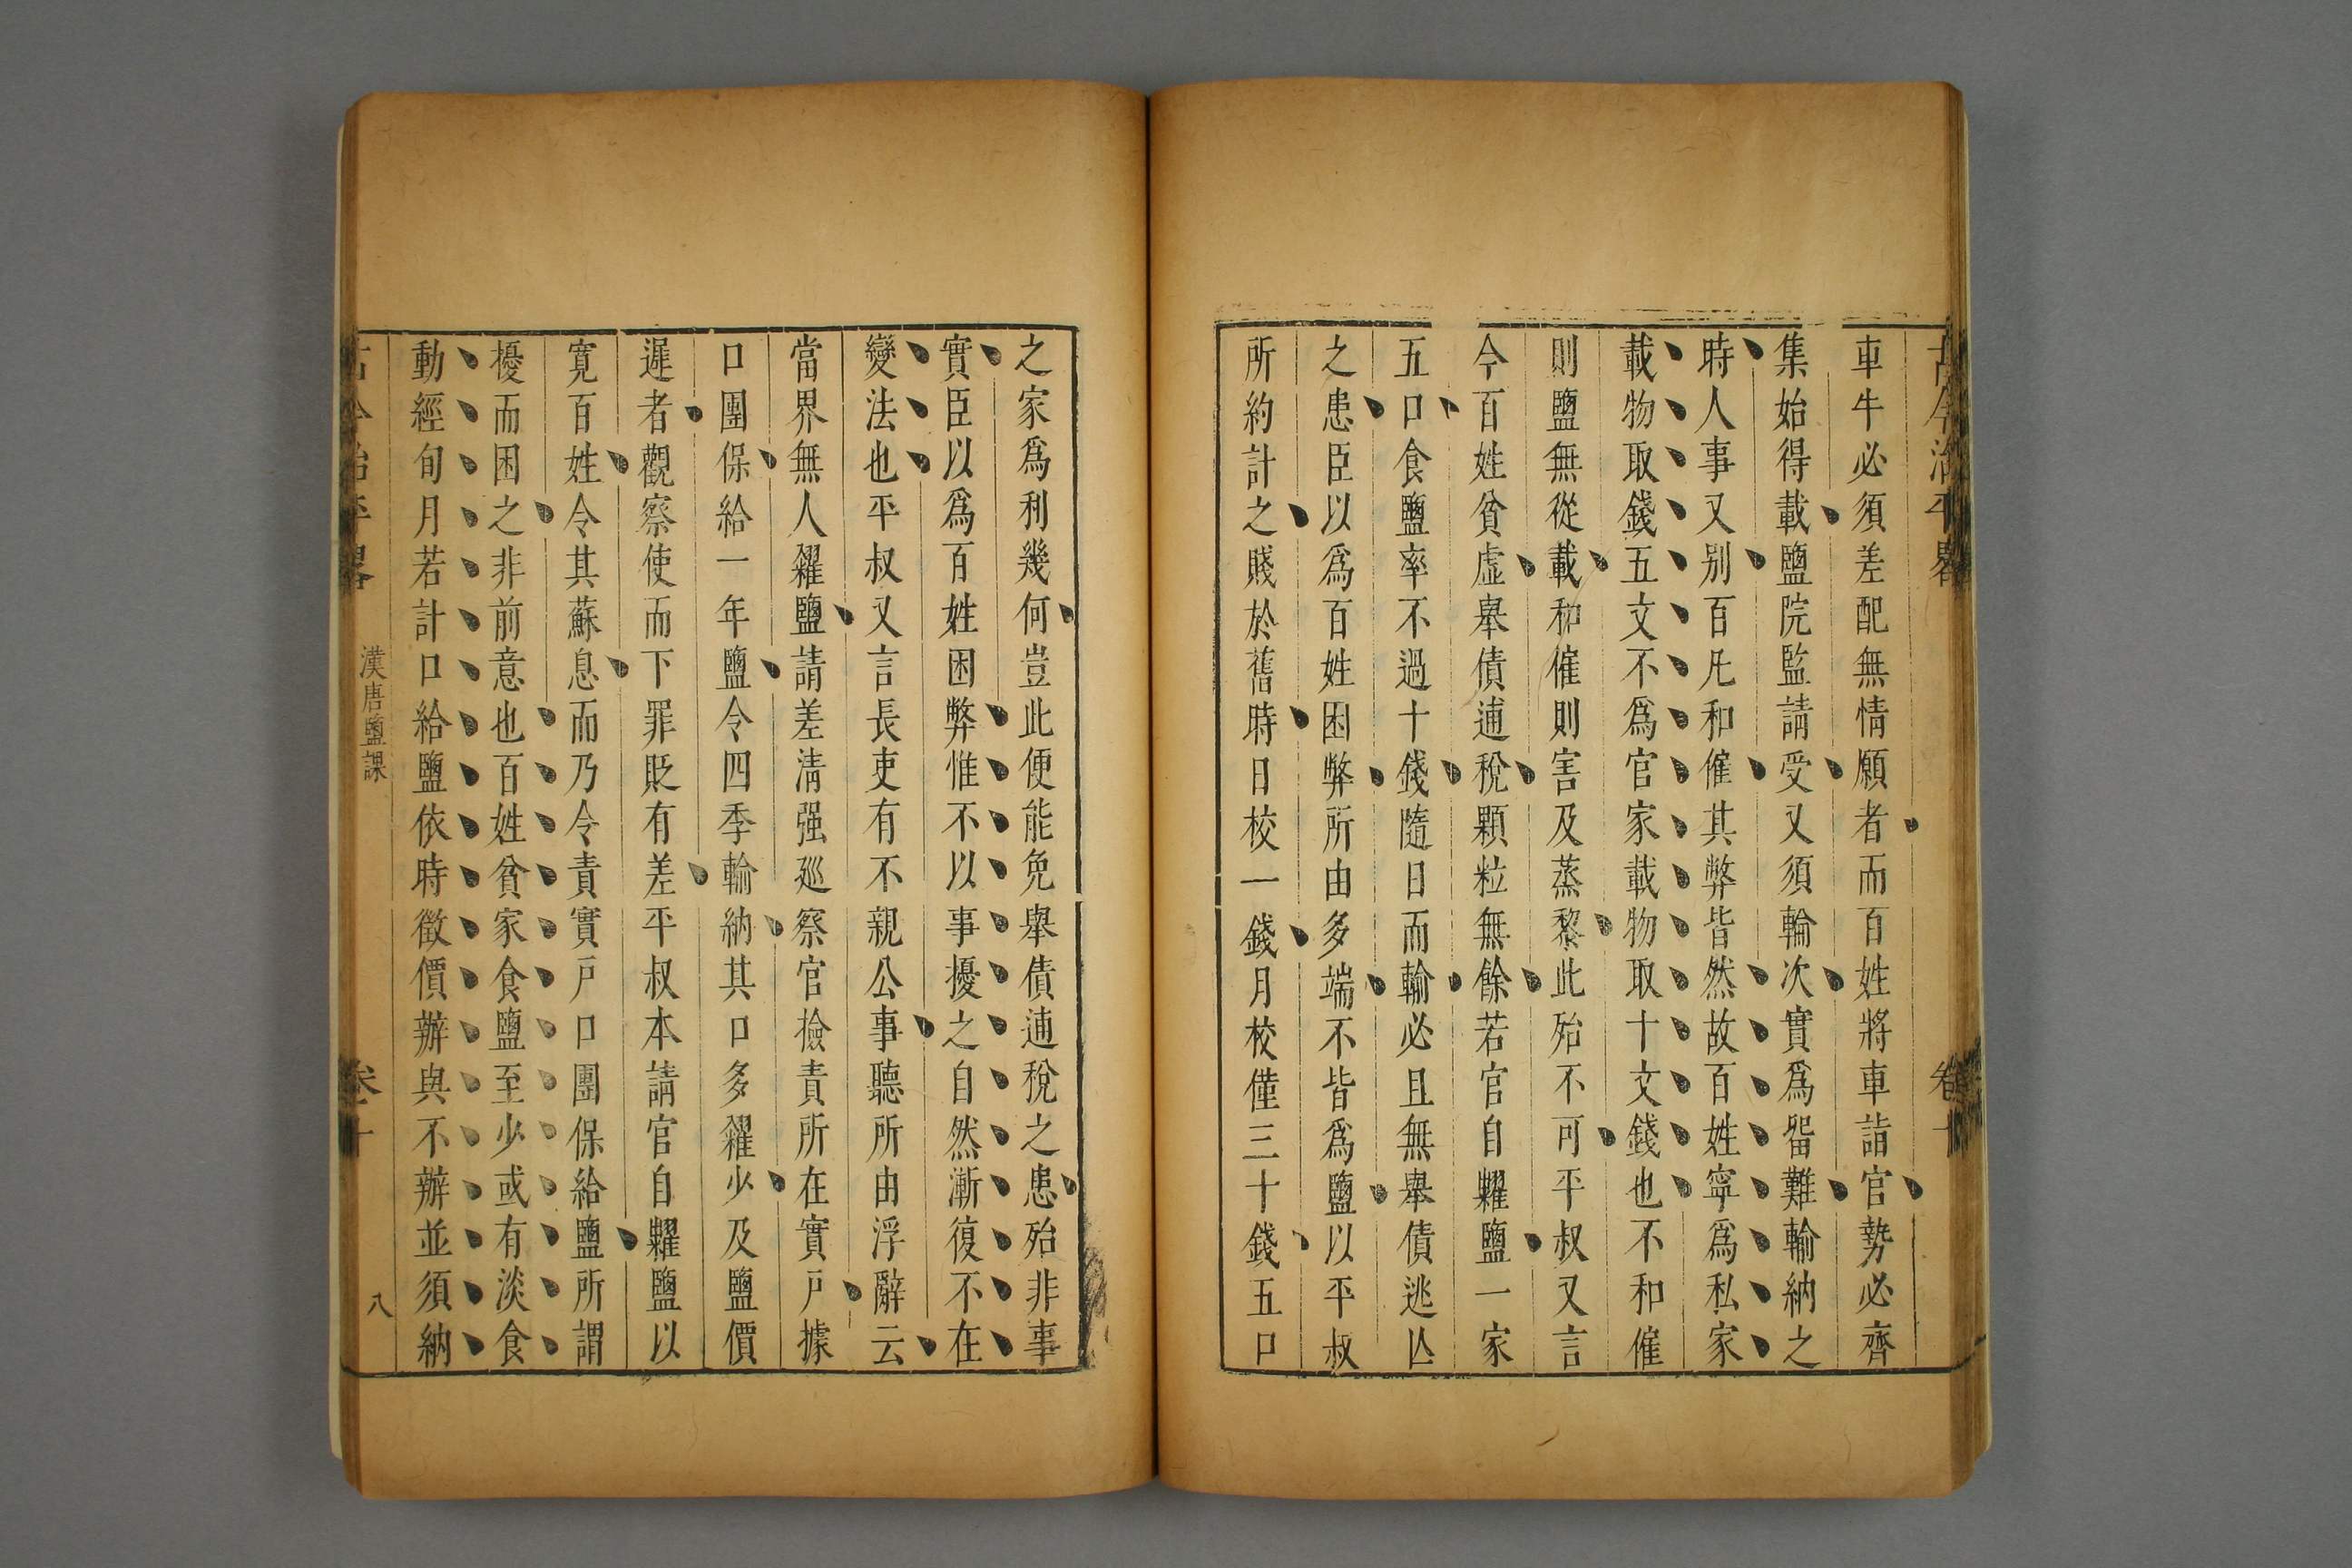 古今治平畧
卷十
車牛必須差配無情願者而百姓將車詣官勢必齊
集始得載鹽院監請受又須輪次實爲畱難輸納之
時人事又别百凡和僱其弊皆然故百姓寧爲私家
載物取錢五文不爲官家載物取十文錢也不和僱
則鹽無從載和僱則害及蒸黎此殆不可平叔又言
今百姓貧虛舉債逋稅顆粒無餘若官自糶鹽一家
五口食鹽率不過十錢隨日而輸必且無舉債逃亾
之患臣以爲百姓困弊所由多端不皆爲鹽以平叔
所約計之賤於舊時日校一錢月校僅三十錢五口
之家爲利幾何豈此便能免舉債逋稅之患殆非事
實臣以爲百姓困弊惟不以事擾之自然漸復不在
變法也平叔又言長吏有不親公事聽所由浮辭云
當界無人糴鹽請差清强廵察官撿責所在實戶據
口團保給一年鹽令四季輸納其口多糴少及鹽價
遲者觀察使而下罪貶有差平叔本請官自糶鹽以
寛百姓令其蘇息而乃令責實戶口團保給鹽所謂
擾而困之非前意也百姓貧家食鹽至少或有淡食
動經旬月若計口給鹽依時徵價辦與不辦並須納
古今治平畧
漢唐鹽課
卷十
八